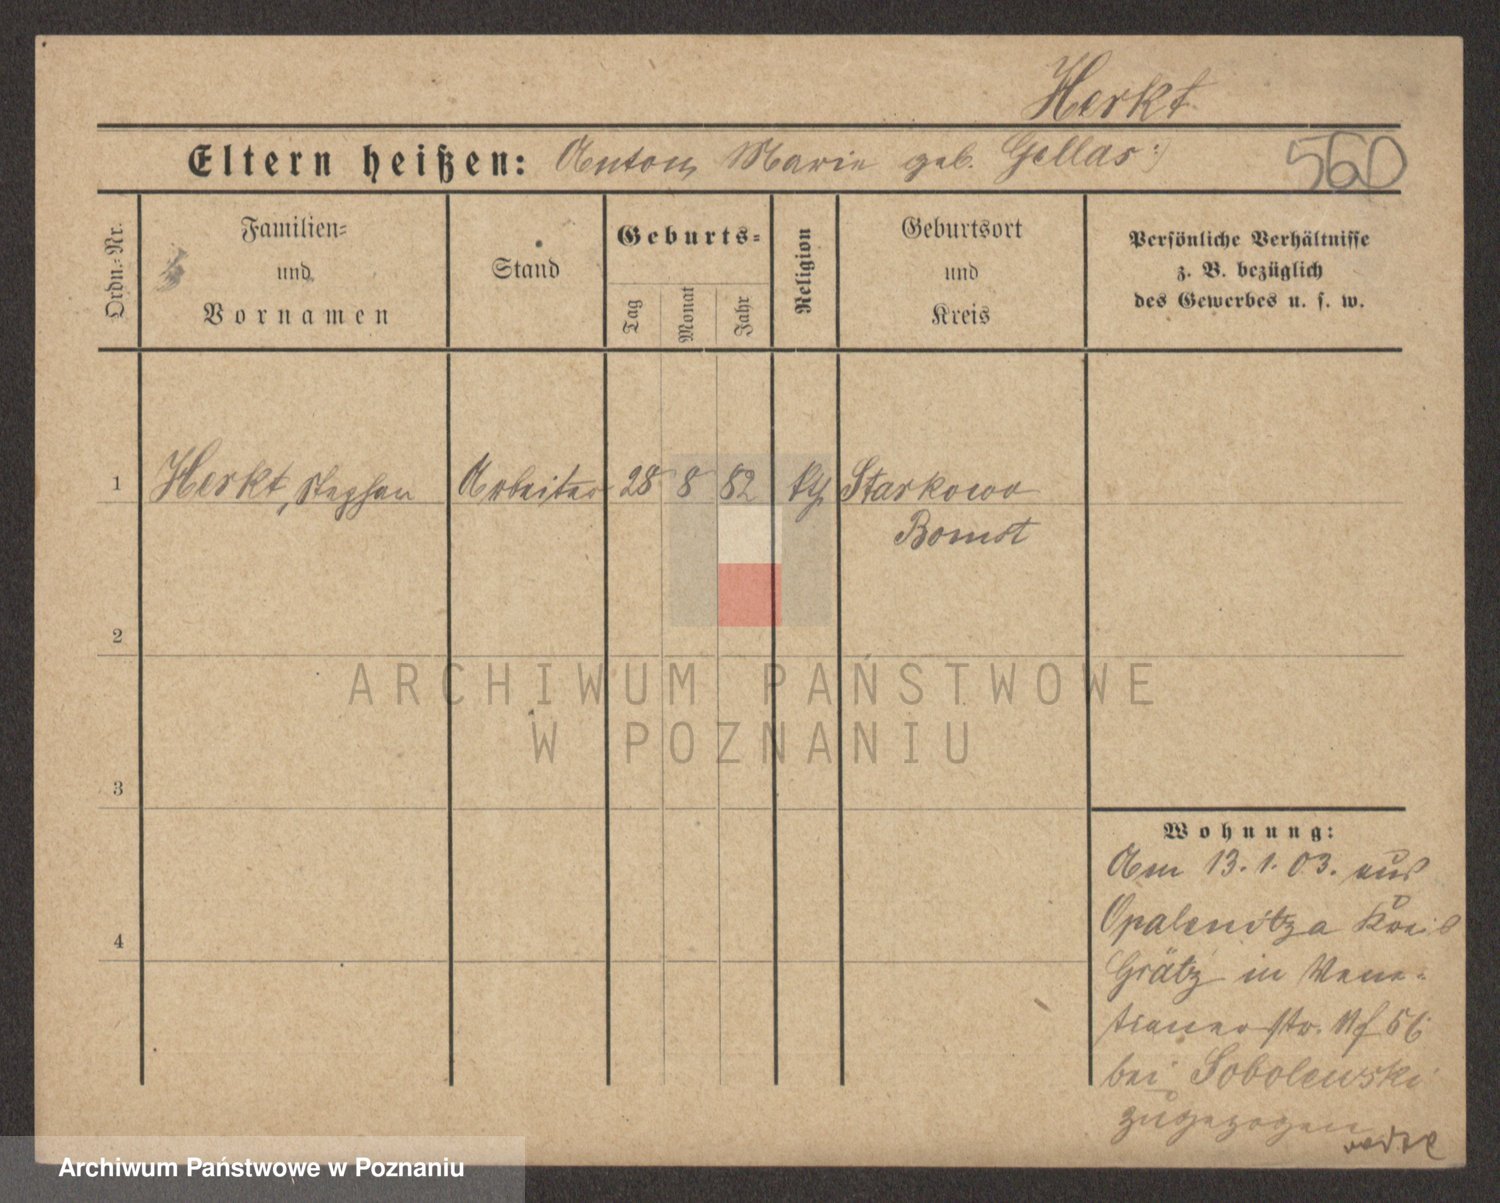 Herkt
Eltern heißen: Anton, Marie geb. Gellas :)
560
Ordn.-Nr.
Familien-
und
Vornamen
Stand
Geburts-
Tag
Monat
Jahr
Religion
Geburtsort
und
Kreis
Persönliche Verhältnisse
z. B. bezüglich
des Gewerbes u. s. w.
1 Herkt, Stephan Arbeiter 28 8 82 kth Starkowo
Bomst
2
3
4
Wohnung:
Am 13. 1. 03. aus
Opalenitza Kreis
Grätz in Vene-
tianerstr. No 5
bei Sobolewski
zugezogen
ARCHIWUM PAŃSTWOWE
W POZNANIU
Archiwum Państwowe w Poznaniu